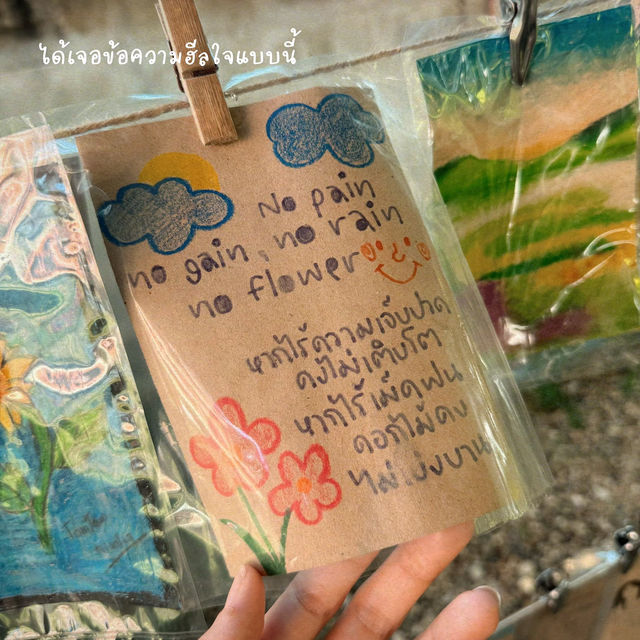 ได้เจอข้อความฮีลใจแบบนี้
No pain
no gain, no rain
no flower
หากไร้ความเจ็บปวด
คงไม่เติบโต
หากไร้เม็ดฝน
ดอกไม้คง
ไม่เบ่งบาน